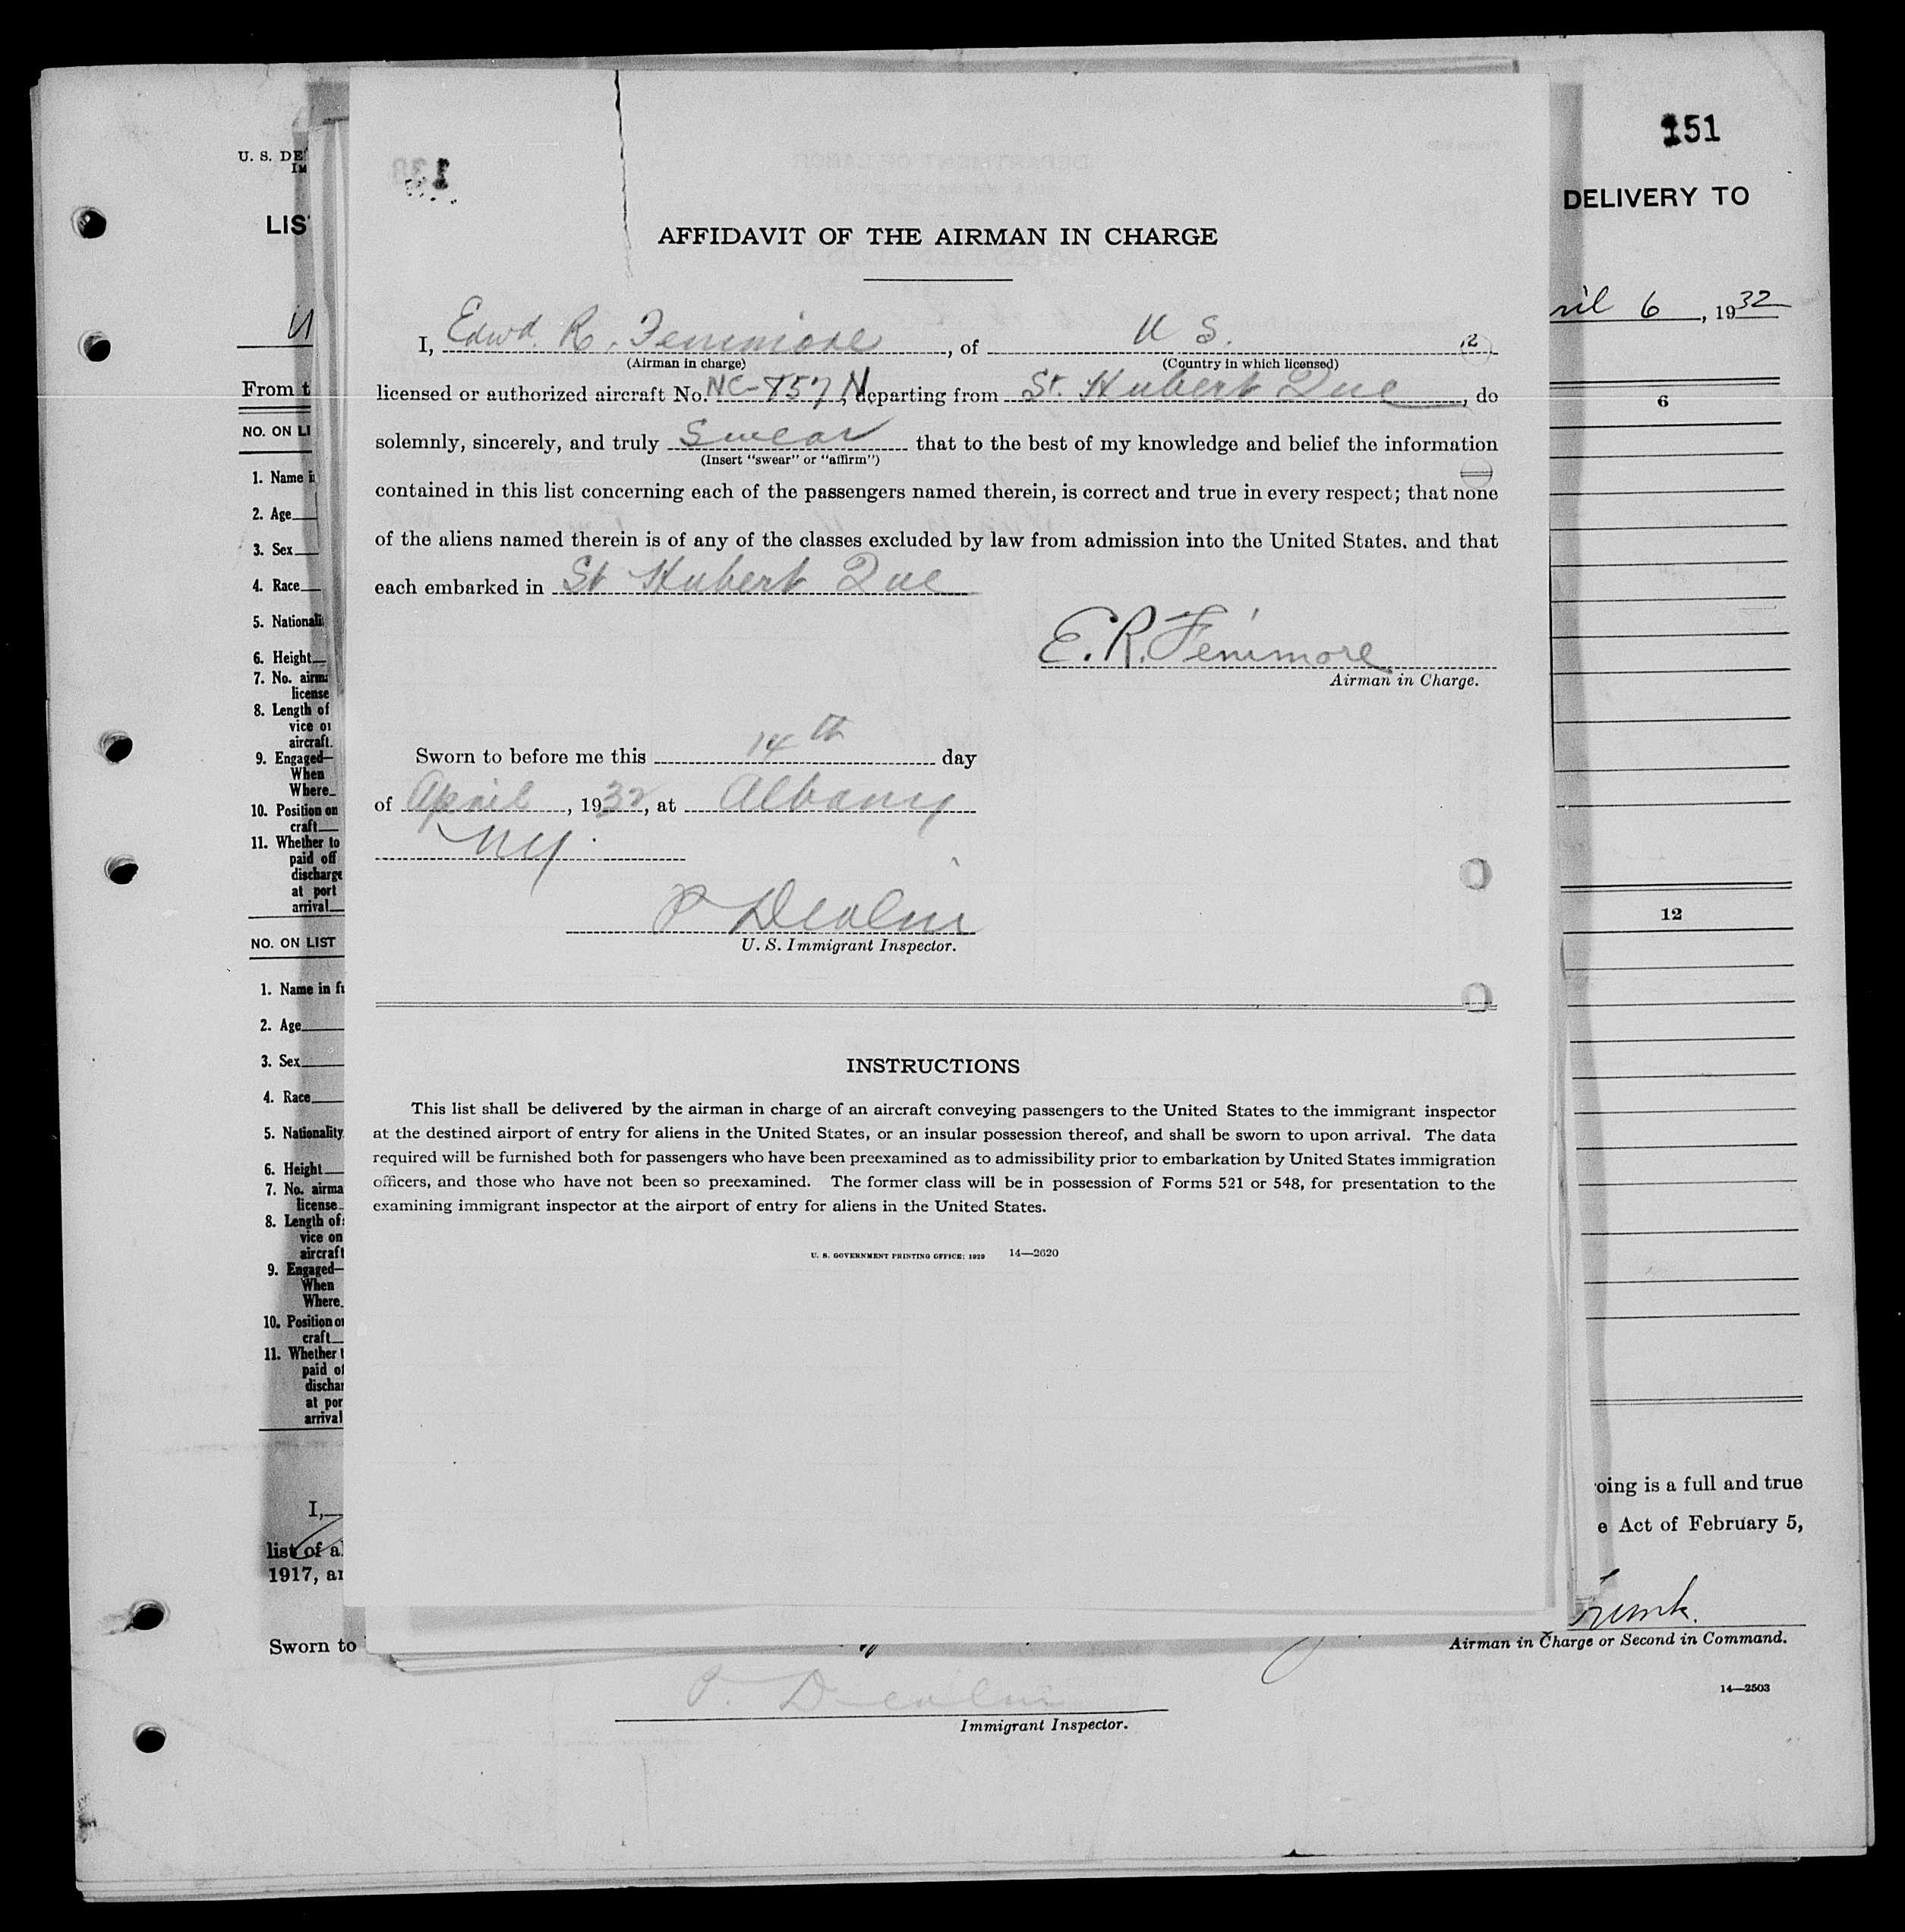 151
U. S. DE
IM
LIS
DELIVERY TO
AFFIDAVIT OF THE AIRMAN IN CHARGE
ril 6, 1932
I, Edwd. R. Fenimore, of U S.
(Airman in charge) (Country in which licensed)
From t
licensed or authorized aircraft No. NC-857N, departing from St. Hubert Que, do
6
NO. ON LI
solemnly, sincerely, and truly Swear that to the best of my knowledge and belief the information
(Insert "swear" or "affirm")
1. Name i
contained in this list concerning each of the passengers named therein, is correct and true in every respect; that none
2. Age
of the aliens named therein is of any of the classes excluded by law from admission into the United States, and that
3. Sex
each embarked in St Hubert Que
4. Race
5. Nationali
E. R. Fenimore
Airman in Charge.
6. Height
7. No. airma
license
8. Length of
vice or
aircraft.
Sworn to before me this 14th day
9. Engaged—
When
Where
of April, 1932, at Albany
10. Position on
craft
11. Whether to
paid off
discharge
at port
arrival
NY.
P Devlin
U. S. Immigrant Inspector.
12
NO. ON LIST
1. Name in fu
2. Age
3. Sex
4. Race
5. Nationality
6. Height
7. No. airma
license
8. Length of
vice on
aircraft
9. Engaged—
When
Where
10. Position on
craft
11. Whether t
paid of
dischar
at por
arrival
INSTRUCTIONS
This list shall be delivered by the airman in charge of an aircraft conveying passengers to the United States to the immigrant inspector
at the destined airport of entry for aliens in the United States, or an insular possession thereof, and shall be sworn to upon arrival. The data
required will be furnished both for passengers who have been preexamined as to admissibility prior to embarkation by United States immigration
officers, and those who have not been so preexamined. The former class will be in possession of Forms 521 or 548, for presentation to the
examining immigrant inspector at the airport of entry for aliens in the United States.
U. S. GOVERNMENT PRINTING OFFICE: 1929 14—2620
I,
oing is a full and true
list of a
e Act of February 5,
1917, an
Sworn to
Airman in Charge or Second in Command.
14—2503
P. Devlin
Immigrant Inspector.